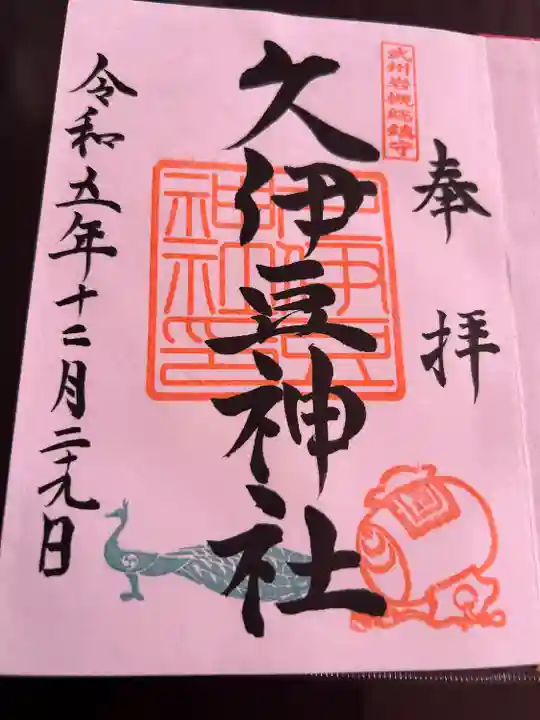 武州岩槻総鎮守
奉拝
久伊豆神社
久伊豆神社印
令和五年十二月二十九日